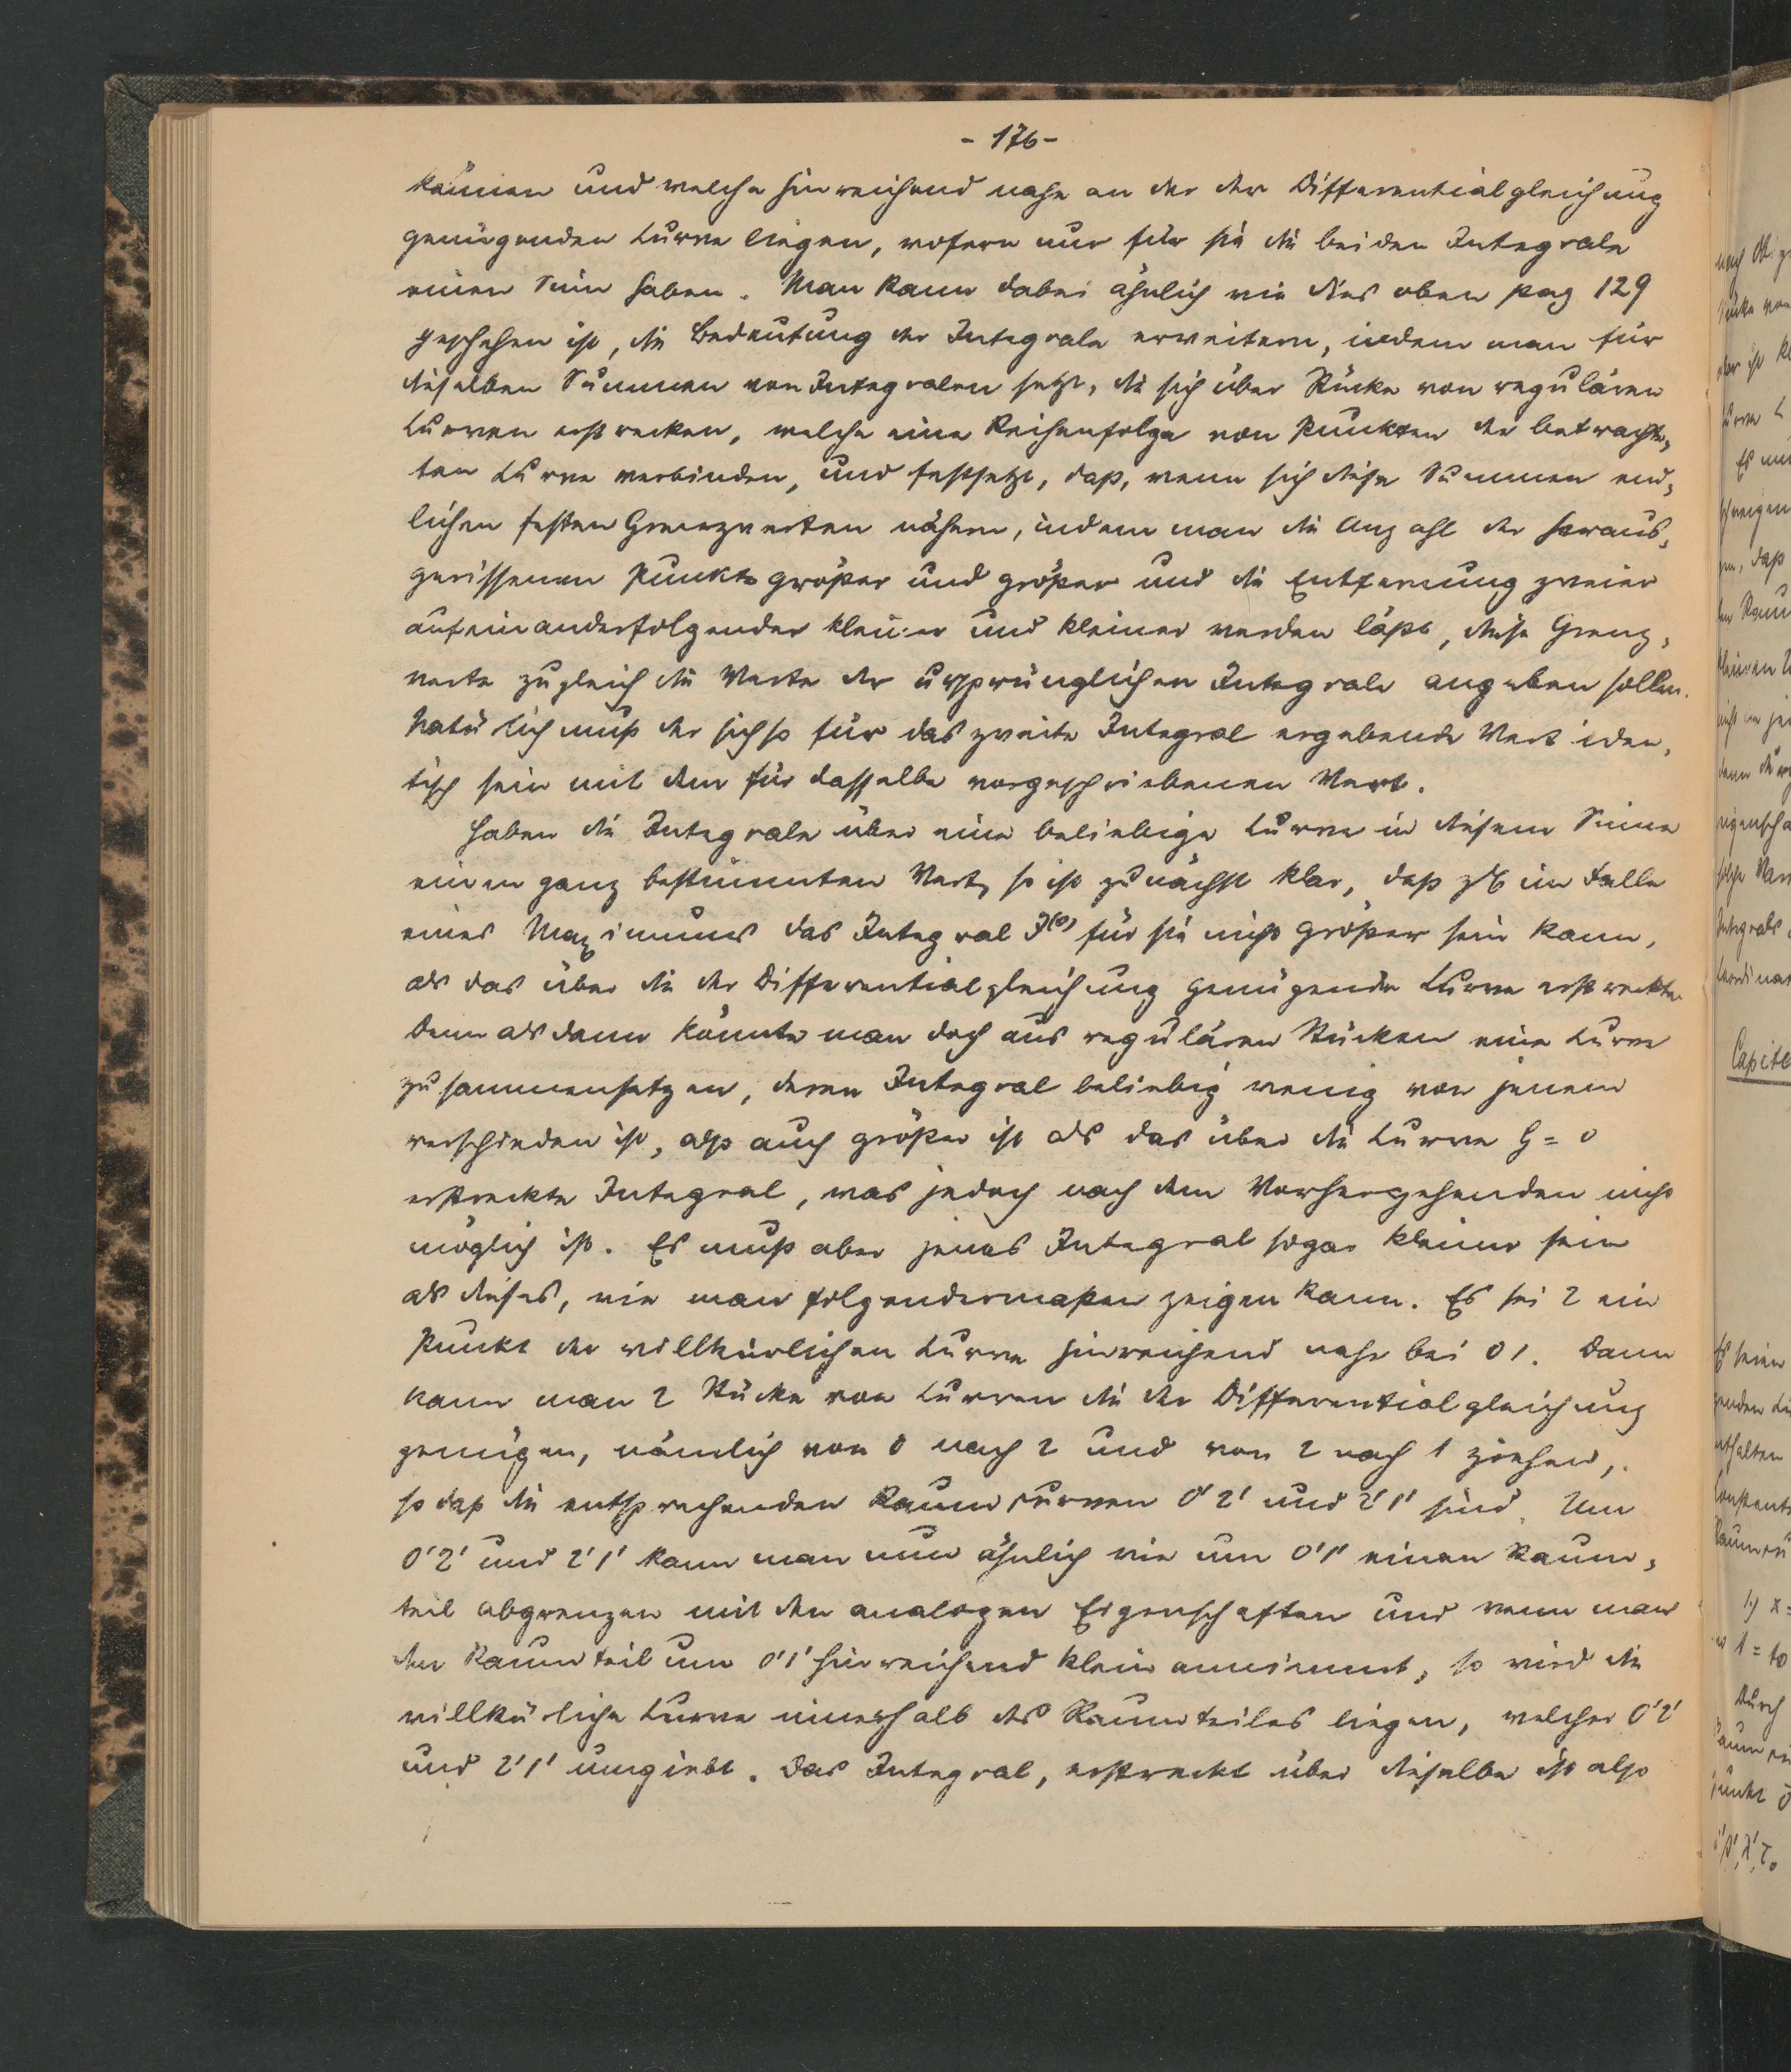 - 176 -
können und welche hinreichend nahe an der der Differentialgleichung
genügenden Curve liegen, wofern nur für sie die beiden Integrale
einen Sinn haben. Man kann dabei ähnlich wie dies oben pag 129
geschehen ist, die Bedeutung der Integrale erweitern, indem man für
dieselben Summen von Integralen setzt, die sich über Stücke von regulären
Curven erstrecken, welche eine Reihenfolge von Punkten der betrach-
teten Curve verbinden, und festsetzt, daß, wenn sich diese Summen end-
lichen festen Grenzwerten nähern, indem man die Anzahl der heraus-
gerissenen Punkte größer und größer und die Entfernung zweier
aufeinanderfolgender kleiner und kleiner werden läßt, diese Grenz-
werte zugleich die Werte der ursprünglichen Integrale angeben sollen.
Natürlich muß der sich so für das zweite Integral ergebende Wert iden-
tisch sein mit dem für dasselbe vorgeschriebenen Wert.
Haben die Integrale über eine beliebige Curve in diesem Sinne
einen ganz bestimmten Wert, so ist zunächst klar, daß zB im Falle
eines Maximums das Integral J⁽⁰⁾ für sie nicht größer sein kann,
als das über die der Differentialgleichung genügende Curve erstreckte.
Denn alsdann könnte man doch aus regulären Stücken eine Curve
zusammensetzen, deren Integral beliebig wenig von jenem
verschieden ist, also auch größer ist als das über die Curve G = 0
erstreckte Integral, was jedoch nach dem Vorhergehenden nicht
möglich ist. Es muß aber jenes Integral sogar kleiner sein
als dieses, wie man folgendermaßen zeigen kann. Es sei 2 ein
Punkt der willkürlichen Curve hinreichend nahe bei 01. Dann
kann man 2 Stücke von Curven die der Differentialgleichung
genügen, nämlich von 0 nach 2 und von 2 nach 1 ziehen,
so daß die entsprechenden Raumcurven 0'2' und 2'1' sind. Um
0'2' und 2'1' kann man nun ähnlich wie um 0'1' einen Raum-
teil abgrenzen mit den analogen Eigenschaften und wenn man
den Raumteil um 0'1' hinreichend klein annimmt, so wird die
willkürliche Curve innerhalb des Raumteiles liegen, welcher 0'2'
und 2'1' umgiebt. Das Integral, erstreckt über dieselbe ist also